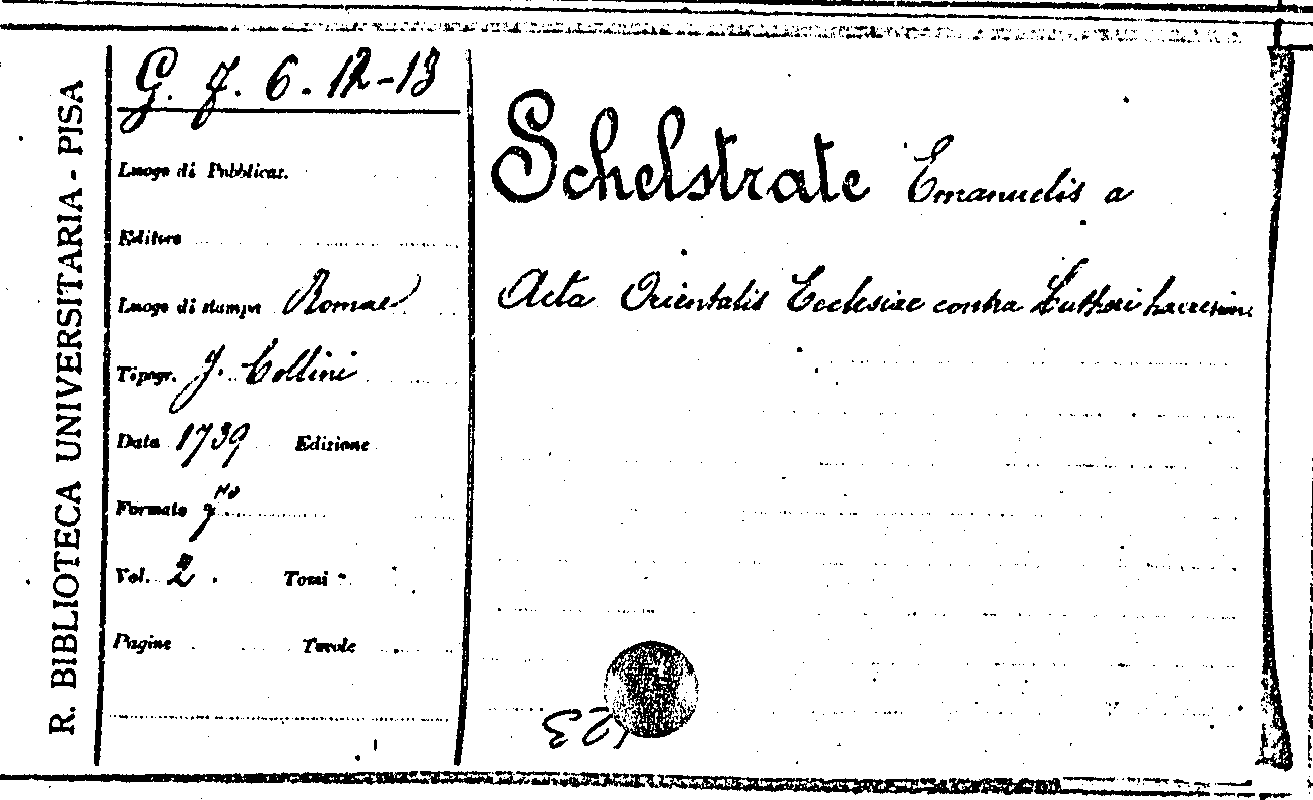 R. BIBLIOTECA UNIVERSITARIA - PISA
G. f. 6. 12-13
Luogo di Pubblicaz.
Editore
Luogo di stampa Romae
Tipogr. J. Collini
Data 1739 Edizione
Formato
Vol. 2. Tomi
Pagine Tavole
Schelstrate Emanuelis a
Acta Orientalis Ecclesiae contra Lutheri haeresim